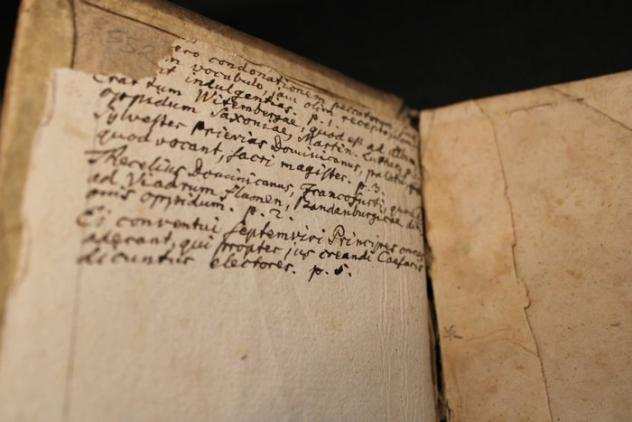 532
ero condonationem peccatorum
vocabulo, jam olim recepto
t indulgentias. p. 1.
Erat tum Witembergae, quod est ad Albim
oppidum Saxoniae, Martin. Luther
Sylvester Prierias Dominicanus, palatii
quod vocant, sacri magister. p. 3.
Thecelius Dominicanus, Francofurti, quod
ad Viadrum flumen, Brandenburgicae
nis oppidum. p. 2.
Ei conventui septemviri Principes omnes
aderant, qui propter jus creandi Caesaris
dicuntur electores. p. 5.